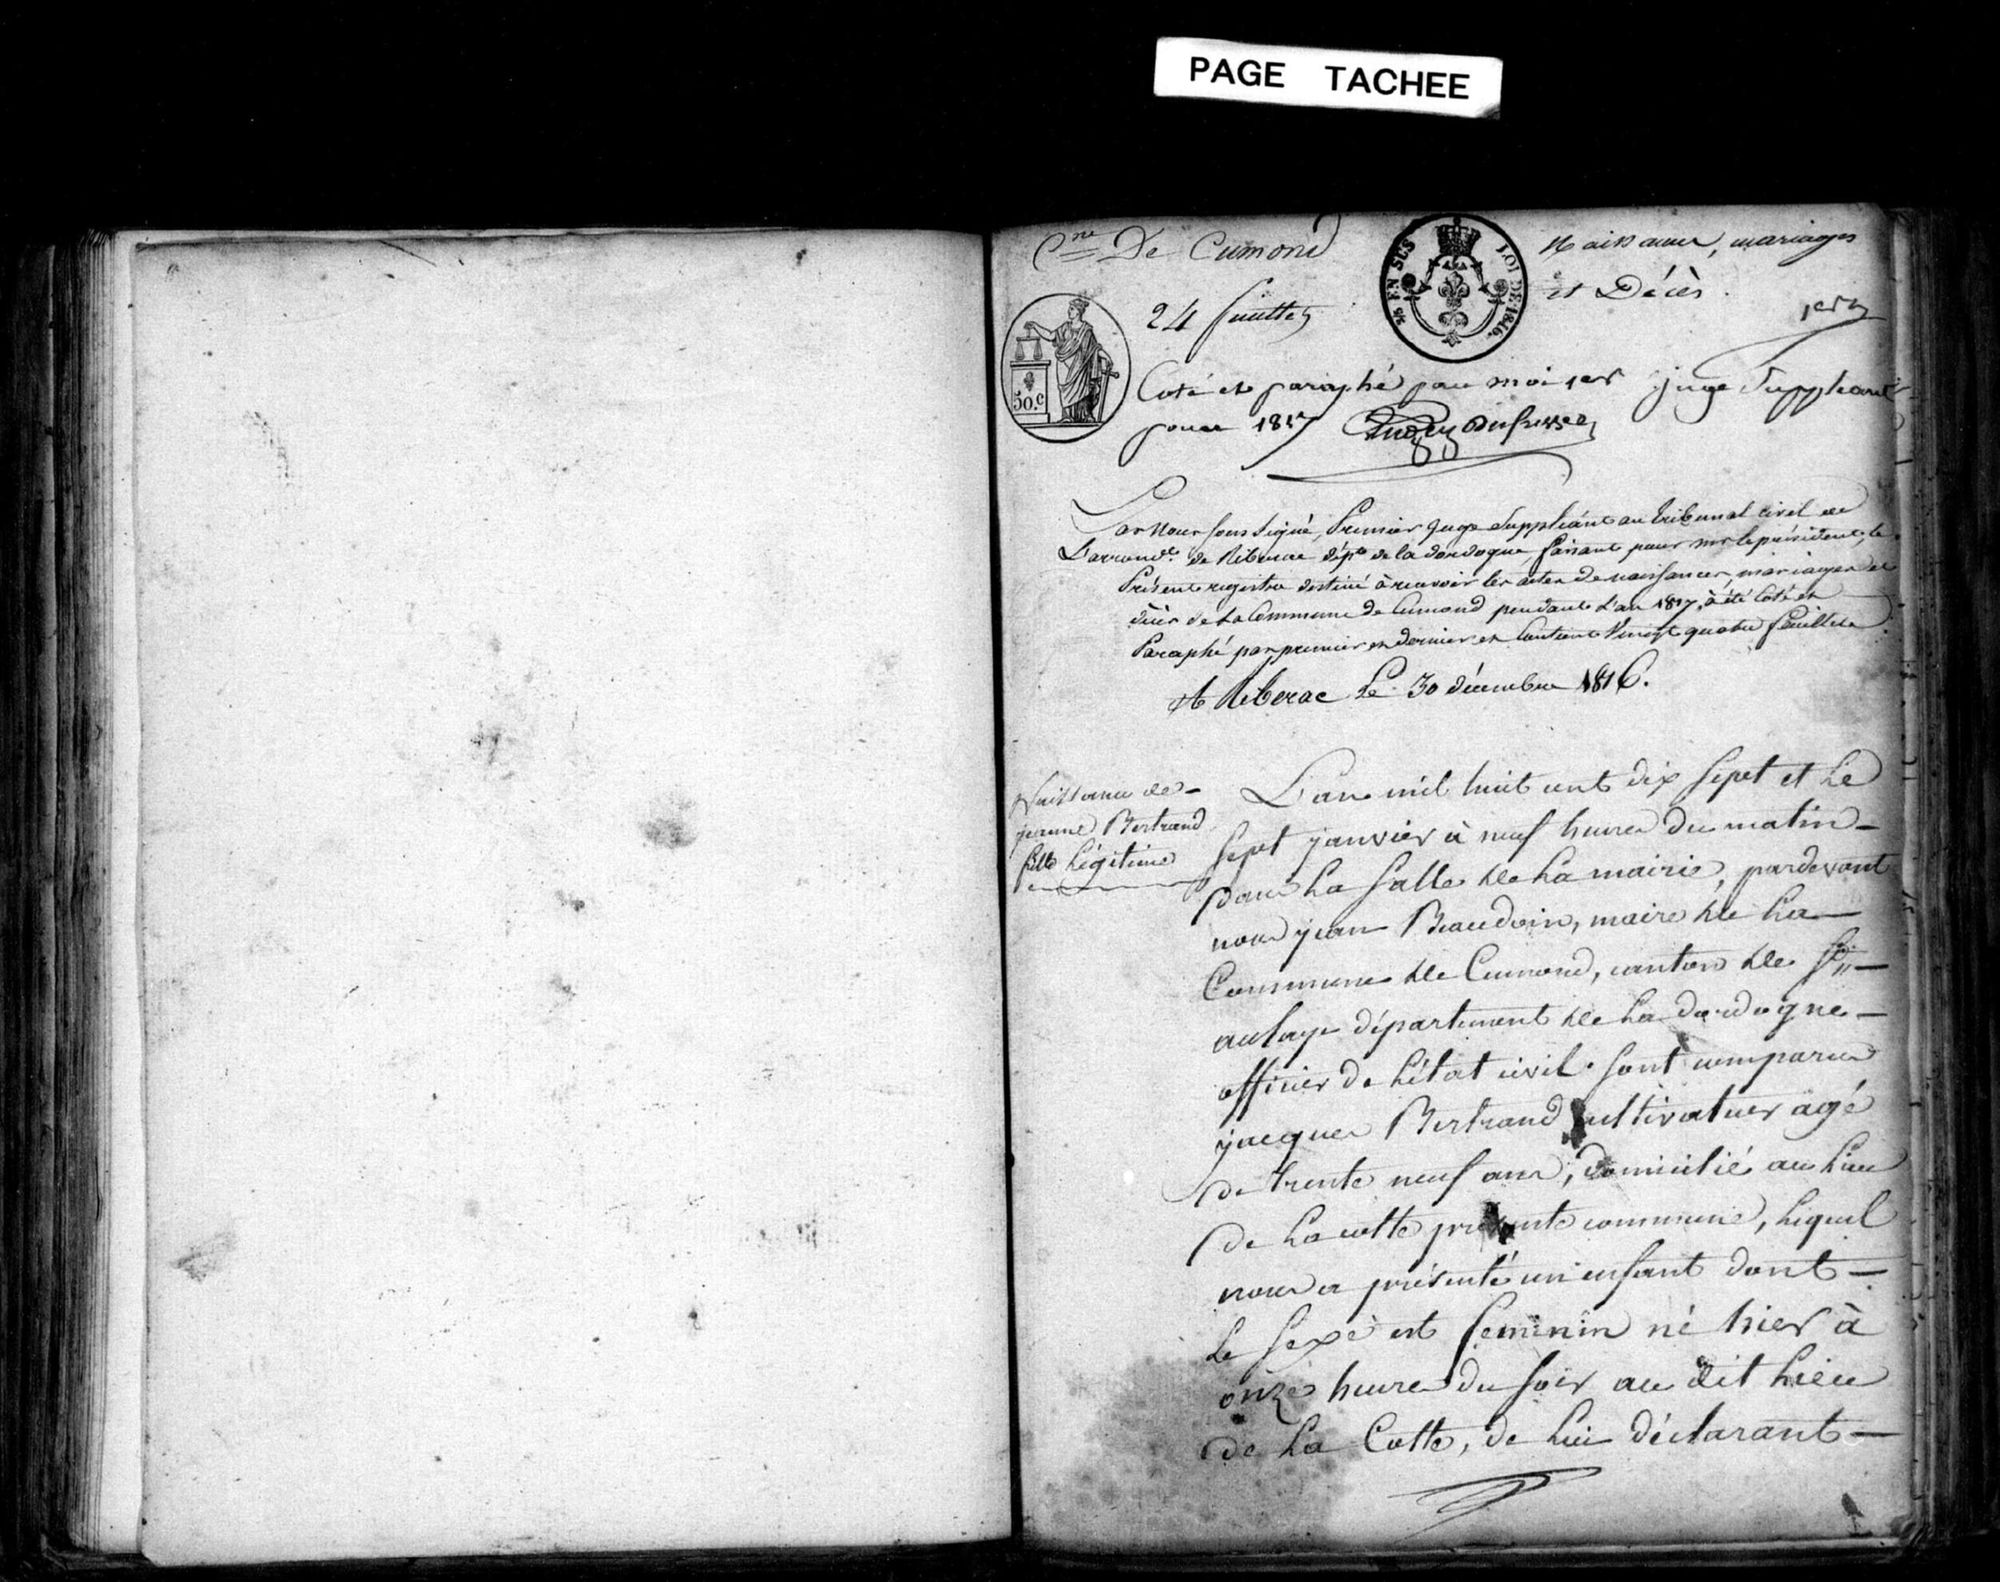 PAGE TACHEE
Cne De Cumond
Naissances, mariages
et Décès.
24 feuillets
1er
EN SUS LOI DE 1816.
50.c
Coté et paraphé par moi 1er juge Suppleant
pour 1817
Par Nous soussigné, Premier Juge Suppléant au tribunal civil de
L'arrondt. de Riberac dépt de la dordogne, faisant pour mr le président, le
Présent registre destiné à recevoir les actes de naissances, mariages et
décès de la Commune de Cumond pendant L'an 1817, à été Coté et
Paraphé par premier et dernier et Contient Vingt quatre feuillets
A Riberac Le 30 décembre 1816.
Naissance de
jeanne Bertrand
fille Légitime
L'an mil huit cent dix sept et le
sept janvier à neuf heures du matin
dans La Salle de La mairie, pardevant
nous jean Beaudoin, maire de La
Commune de Cumond, canton de St
aulaye département de La dordogne
officier de L'état civil. sont comparus
jacques Bertrand cultivatuer agé
de trente neuf ans, domicilié au Lieu
de La cotte présente commune, Lequel
nous a présenté un enfant dont
Le Sexe est feminin né hier à
onze heures du soir au dit Lieu
de La Cotte, de Lui déclarant